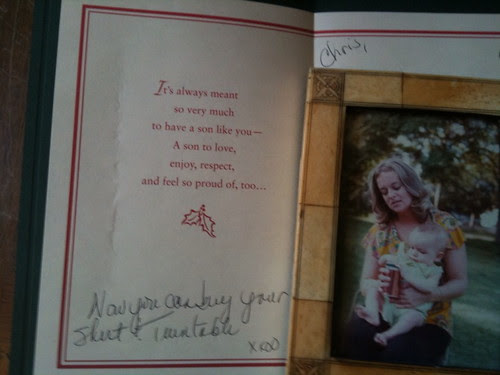 Chris,
It's always meant
so very much
to have a son like you—
A son to love,
enjoy, respect,
and feel so proud of, too...
Now you can buy your
Shirt & Turntable
XXOO